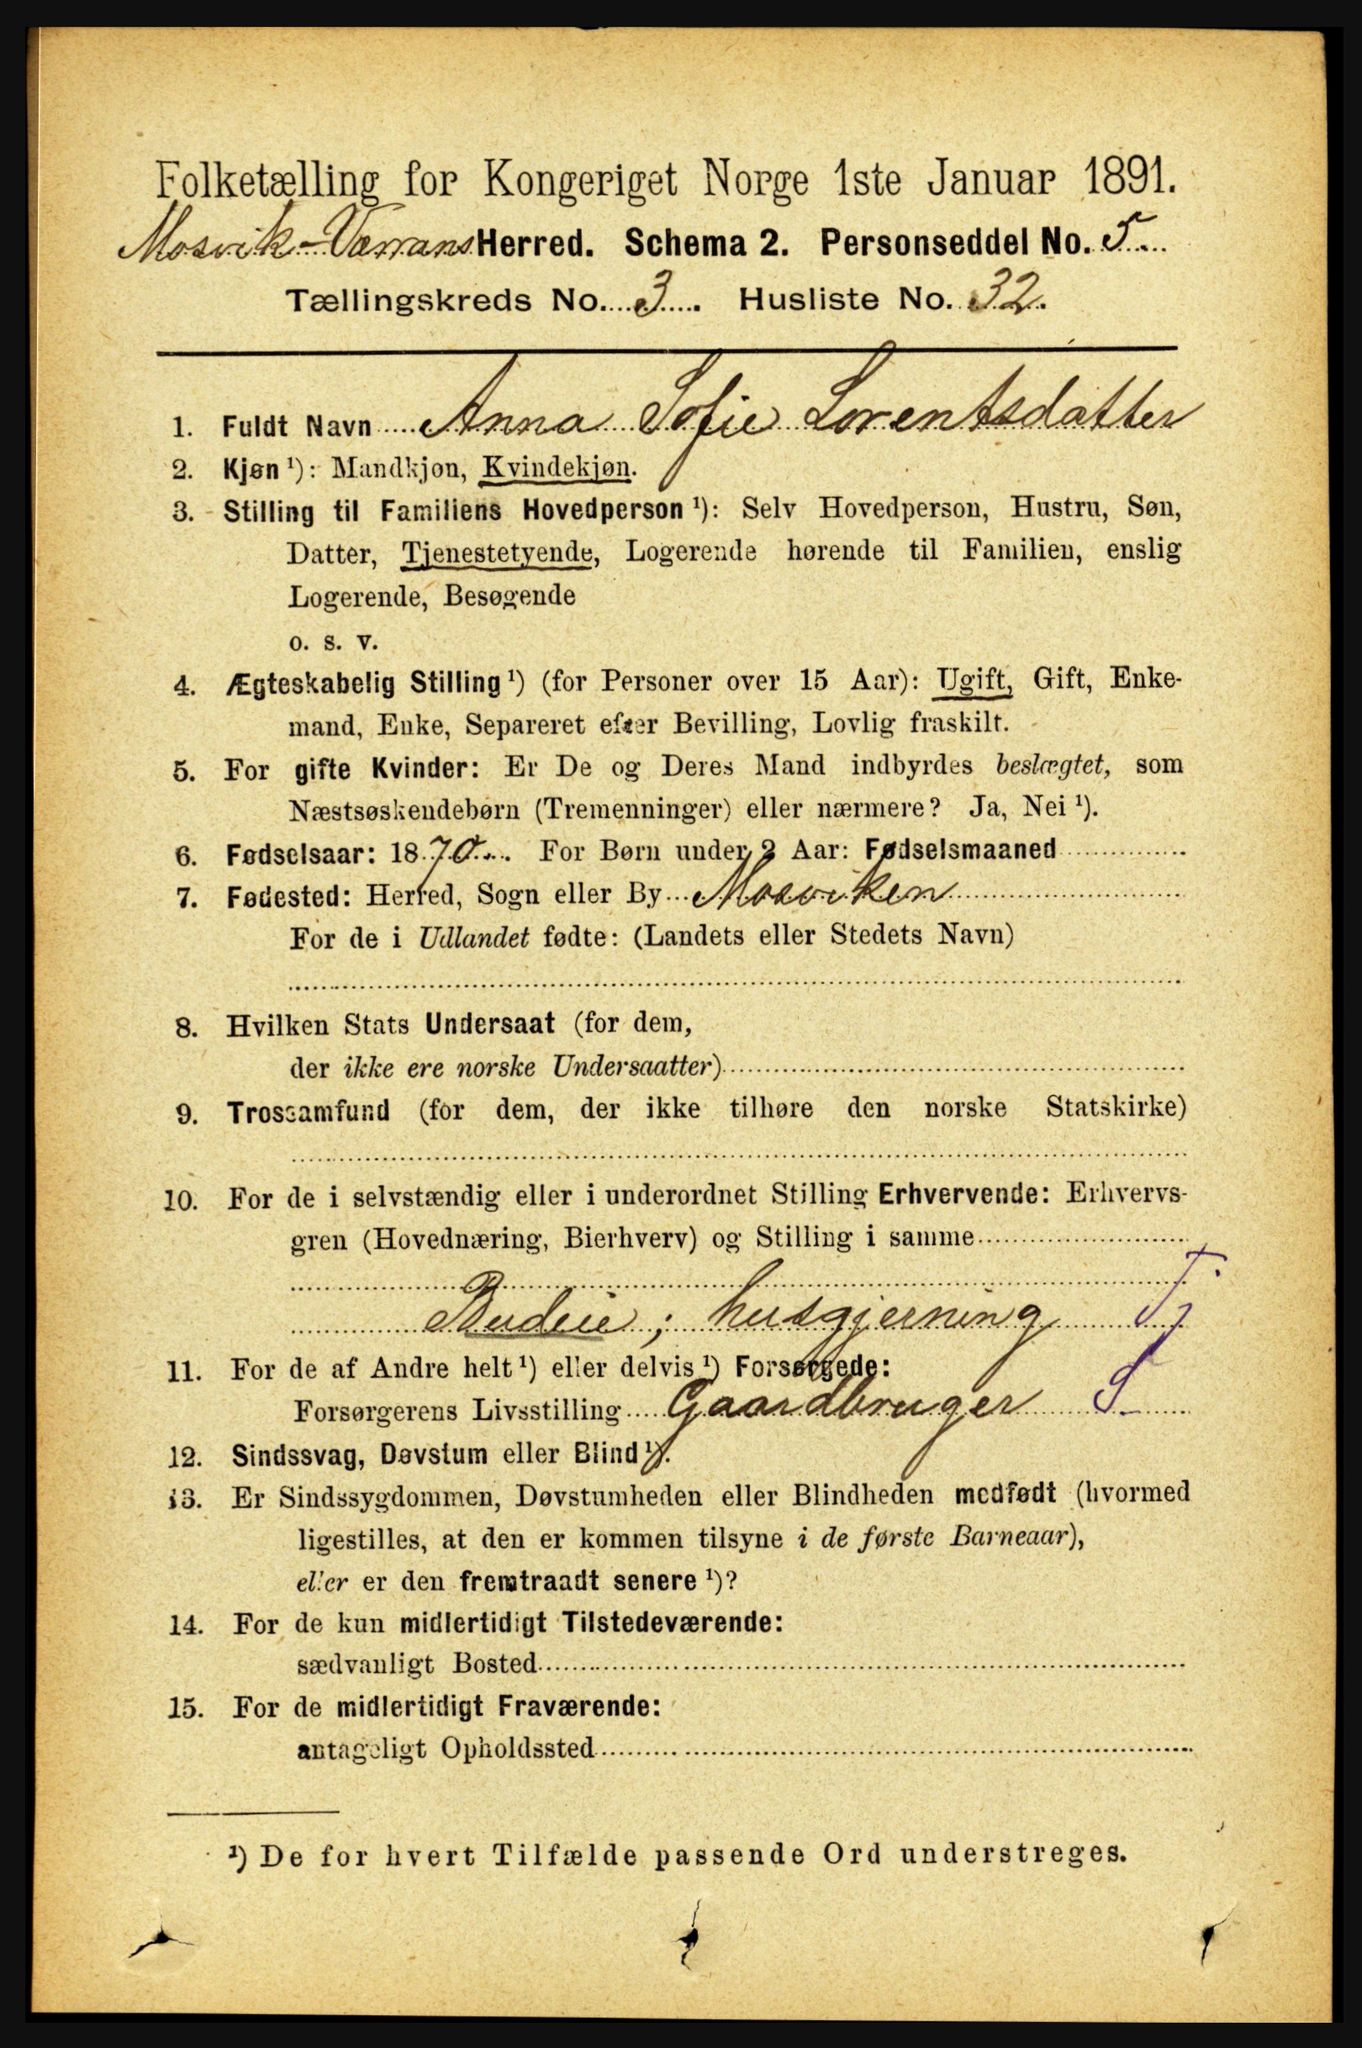 Folketælling for Kongeriget Norge 1ste Januar 1891.
Mosvik-Værrans Herred. Schema 2. Personseddel No. 5
Tællingskreds No. 3. Husliste No. 32.
1. Fuldt Navn Anna Sofie Lorentsdatter
2. Kjøn ¹): Mandkjøn, Kvindekjøn.
3. Stilling til Familiens Hovedperson ¹): Selv Hovedperson, Hustru, Søn,
Datter, Tjenestetyende, Logerende hørende til Familien, enslig
Logerende, Besøgende
o. s. v.
4. Ægteskabelig Stilling ¹) (for Personer over 15 Aar): Ugift, Gift, Enke-
mand, Enke, Separeret efter Bevilling, Lovlig fraskilt.
5. For gifte Kvinder: Er De og Deres Mand indbyrdes beslægtet, som
Næstsøskendebørn (Tremenninger) eller nærmere? Ja, Nei ¹).
6. Fødselsaar: 1870. For Børn under 2 Aar: Fødselsmaaned
7. Fødested: Herred, Sogn eller By Mosviken
For de i Udlandet fødte: (Landets eller Stedets Navn)
8. Hvilken Stats Undersaat (for dem,
der ikke ere norske Undersaatter)
9. Trossamfund (for dem, der ikke tilhøre den norske Statskirke)
10. For de i selvstændig eller i underordnet Stilling Erhvervende: Erhvervs-
gren (Hovednæring, Bierhverv) og Stilling i samme
Budeie; husgjerning Tj
11. For de af Andre helt ¹) eller delvis ¹) Forsørgede:
Forsørgerens Livsstilling Gaardbruger S
12. Sindssvag, Døvstum eller Blind ¹).
13. Er Sindssygdommen, Døvstumheden eller Blindheden medfødt (hvormed
ligestilles, at den er kommen tilsyne i de første Barneaar),
eller er den fremtraadt senere ¹)?
14. For de kun midlertidigt Tilstedeværende:
sædvanligt Bosted
15. For de midlertidigt Fraværende:
antageligt Opholdssted
¹) De for hvert Tilfælde passende Ord understreges.